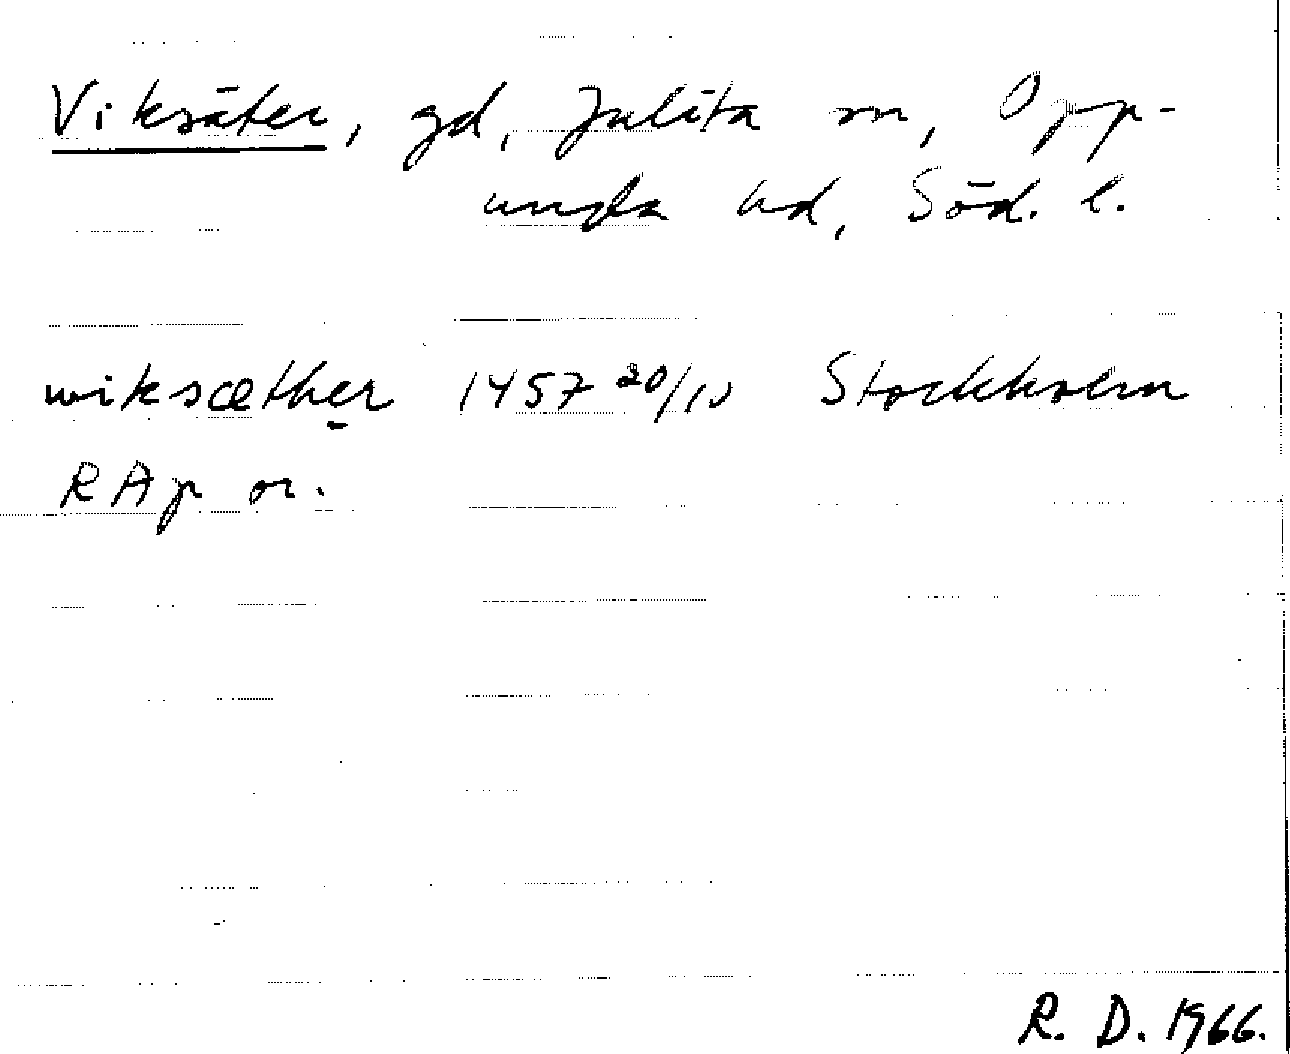 Viksäter, gd, Julita sn, Opp-
unda hd, Söd. l.
wiksæther 1457 20/10 Stockholm
RAp or.
R. D. 1966.